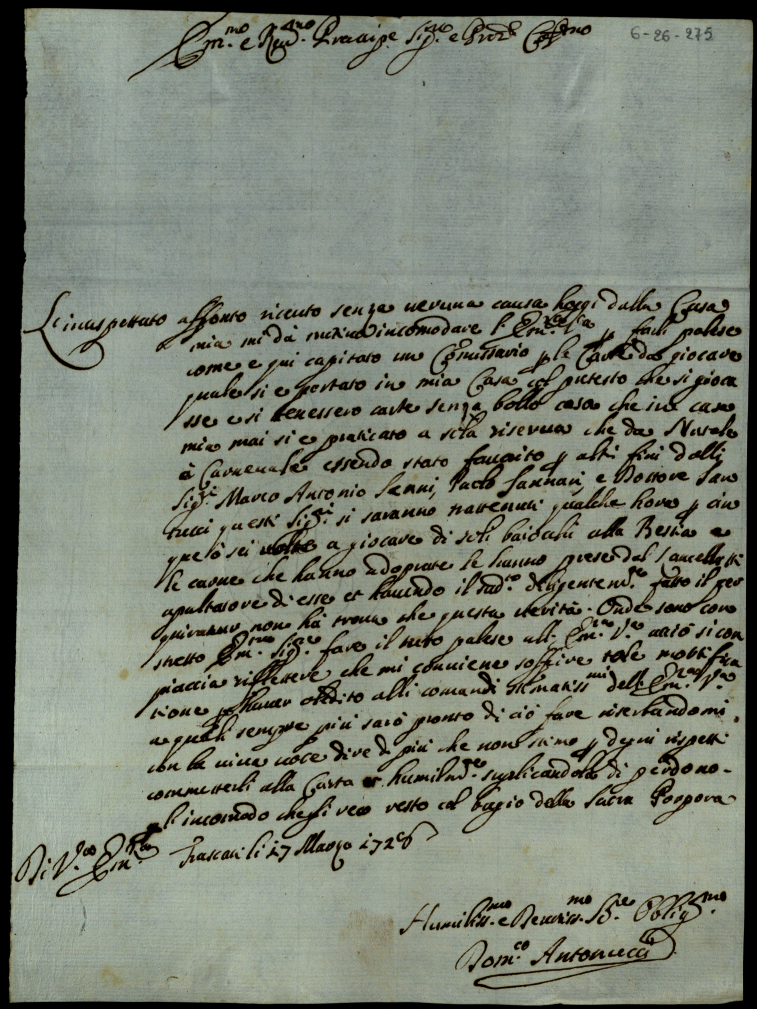 Em.mo e Rev.mo Prencipe Sig.re e Pron.e Col.mo
6-26-275
L'inaspettato affronto riceuto senza neruna causa hoggi dalla Casa
mia mi dà incomodare l'Em.za V.ra p farli palese
come e qui capitato un Comissario p le Carte da giocare
quale si e portato in mia Casa col pretesto che si gioca
sse e si tenessero carte senza bollo cosa che in casa
mia mai si e praticato a sola riserva che da Natale
à Carnevale essendo stato favorito p altri fini dalli
Sig.ri Marco Antonio Senni, Paolo Sannari, e Dottore
tucci questi Sig.ri si saranno trattenuti qualche hora p cin
que ò sei volte a giocare di soli baiochi alla Bestia e
le carte che hanno adoprate le hanno prese dal Sancelletti
apaltatore di esse et havendo il sud.o diligentem.te fatto il per
non hà trova che questa verità. Onde sono con
stretto Em.mo Sig.re fare il tutto palese all'Em.za V.ra acciò si con
piaccia riflettere che mi conviene soffrire tale mortifica
tione p haver obedito alli comandi stimatiss.mi dell'Em.za V.ra
a quali sempre più sarò pronto di ciò fare riserbandomi
con la viva voce dire di più che non stimo p degni rispetti
commetterli alla Carta et humilm.te suplicandola di perdono
l'incomodo che gli reco resto col bagio della Sacra Porpora
Di V.ra Em.za Frascati li 17 Marzo 1726
Humiliss.mo e Devotiss.mo S.re Oblig.mo
Dom.co Antonucci